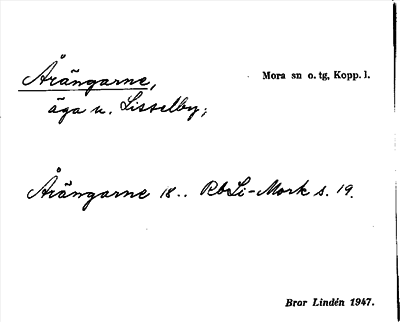 Årängarne,
Mora sn o. tg, Kopp. l.
äga u. Lisselby;
Årängarne 18.. RbLi-Mork s. 19.
Bror Lindén 1947.